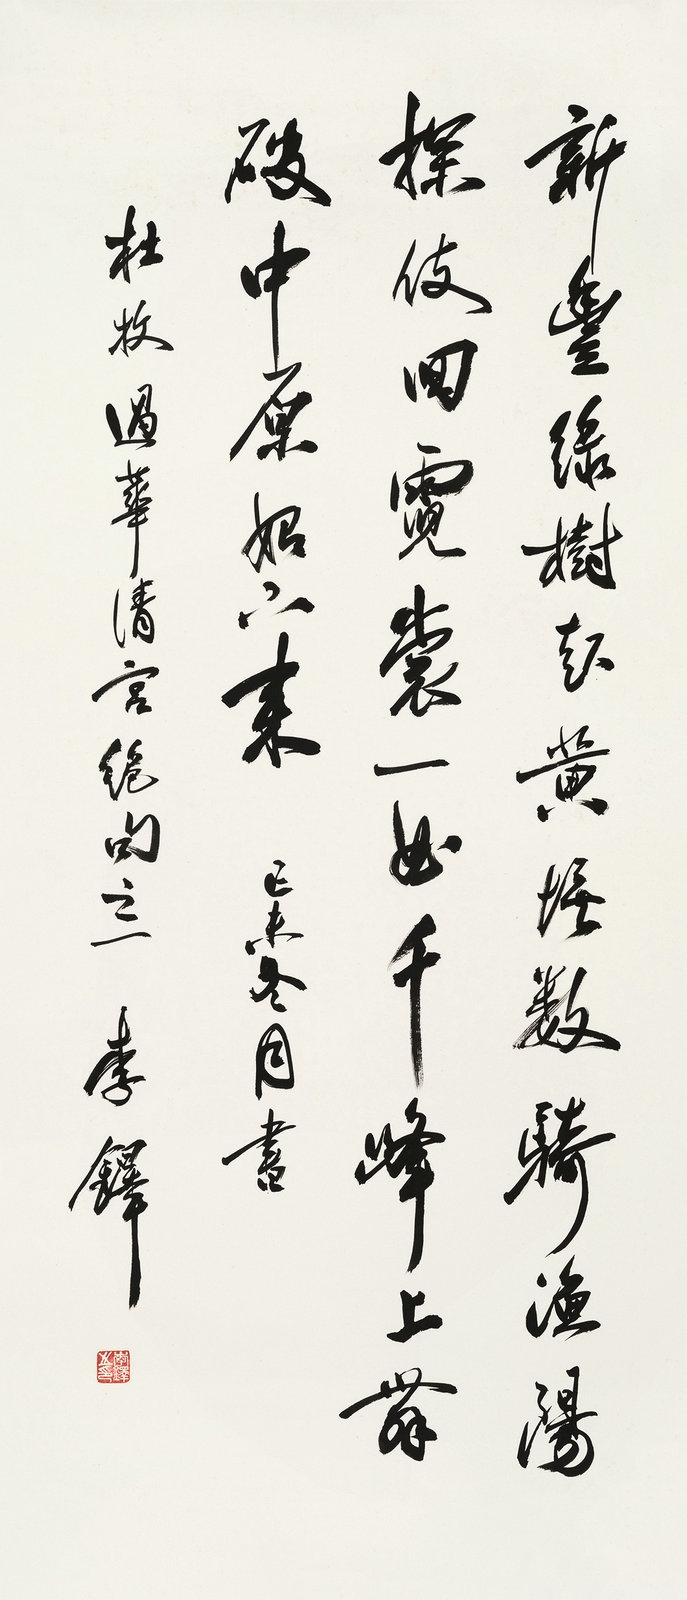 新豐綠樹起黃埃數騎漁陽
探使回霓裳一曲千峰上舞
破中原始下來 己未冬月書
杜牧過華清宮絕句之一 李鐸